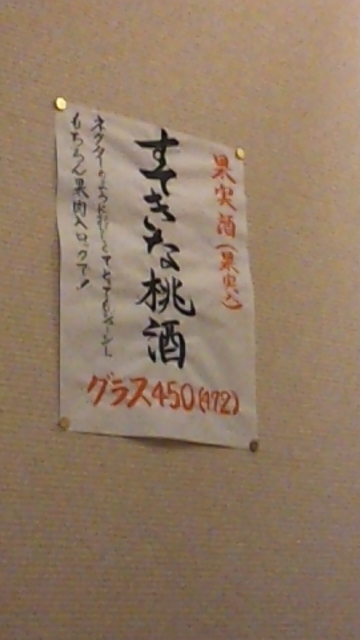 果実酒(果実入)
すてきな桃酒
ネクターのように甘くてとってもジューシー
もちろん果肉入ロックで!
グラス450(472)